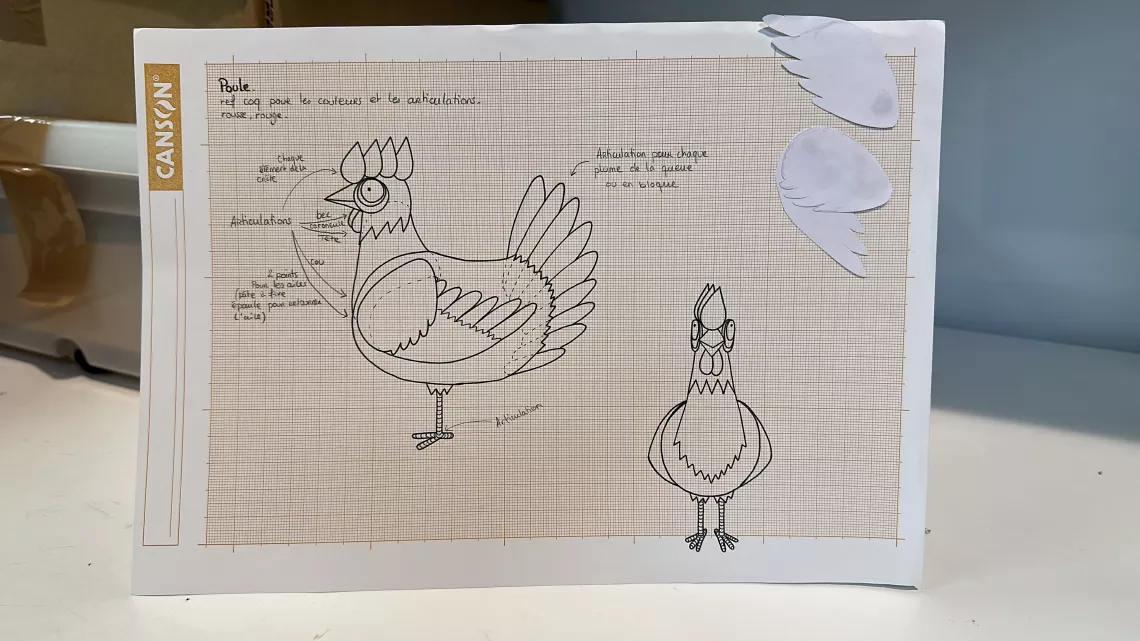 CANSON®
Poule.
ref coq pour les couleurs et les articulations.
rousse, rouge.
Chaque
élément de la
crête
Articulations
bec
caroncule
Tête
cou
2 points
Pour les ailes
(pâte à fixe
épaule pour
l'aile)
Articulation pour chaque
plume de la queue
ou en bloque
Articulation